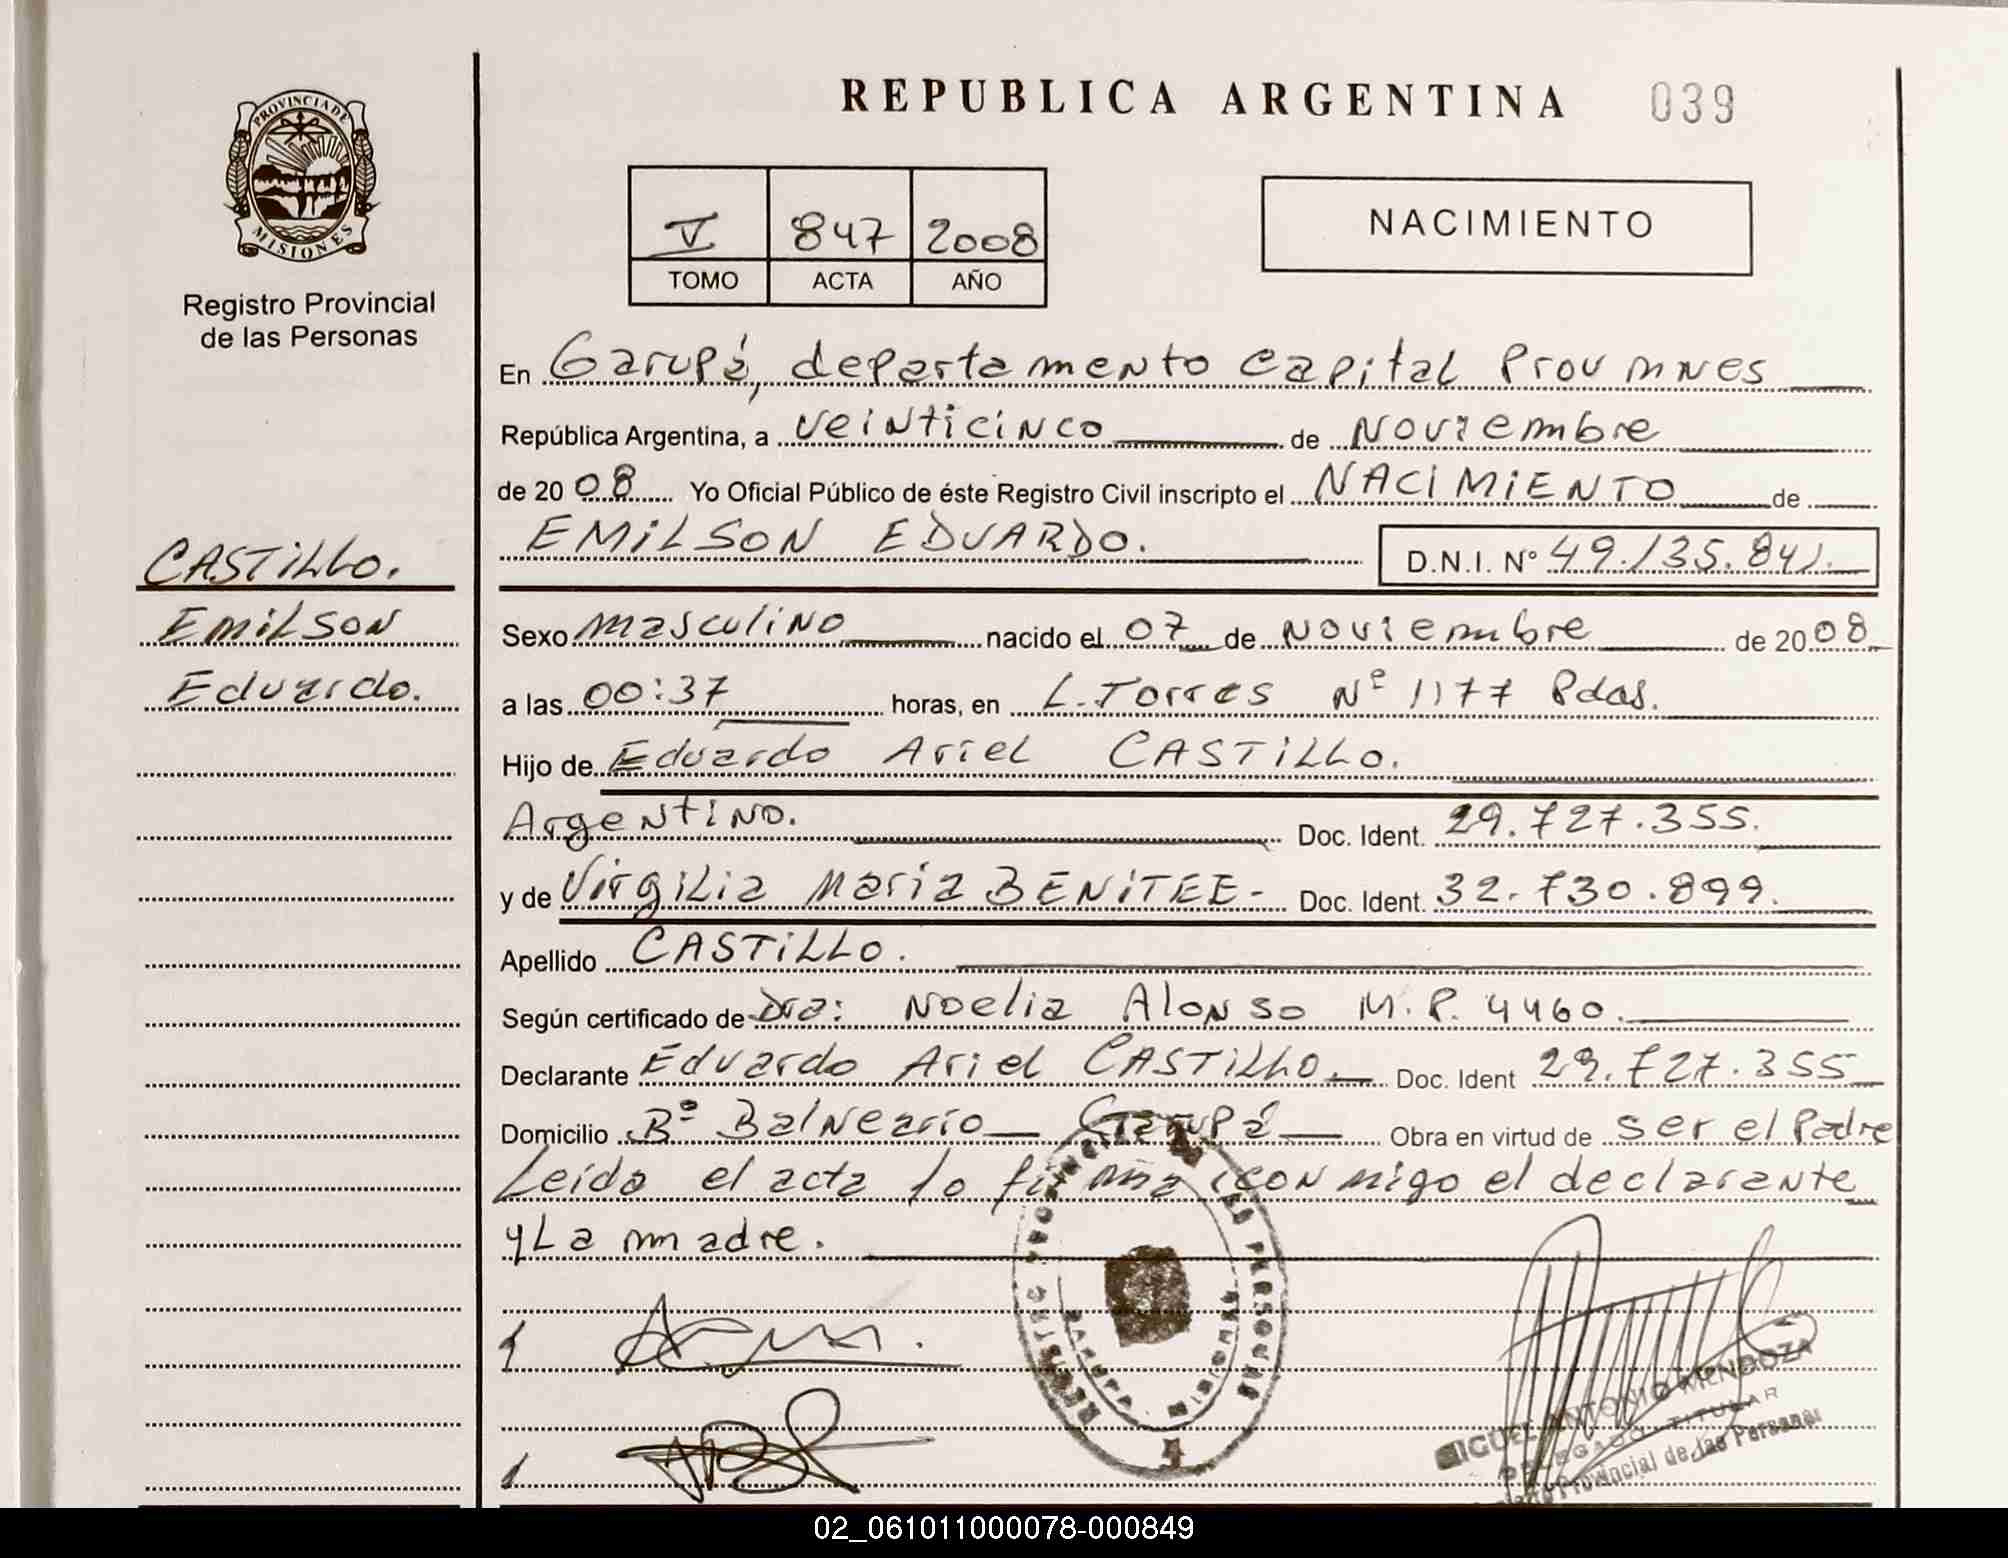 REPUBLICA ARGENTINA 039
PROVINCIA DE
MISIONES
Registro Provincial
de las Personas
V 847 2008
TOMO ACTA AÑO
NACIMIENTO
En Garupá, departamento Capital Prov mnes
República Argentina, a veinticinco de Noviembre
de 2008 Yo Oficial Público de éste Registro Civil inscripto el NACIMIENTO de
EMILSON EDUARDO. D.N.I. Nº 49.135.841.
CASTILLO.
Emilson
Eduardo.
Sexo masculino nacido el 07 de Noviembre de 2008
a las 00:37 horas, en L. Torres Nº 1177 Pdas.
Hijo de Eduardo Ariel CASTILLO.
Argentino. Doc. Ident. 29.727.355.
y de Virgilia Maria BENITEE- Doc. Ident. 32.730.899.
Apellido CASTILLO.
Según certificado de Dra: Noelia Alonso M.P. 4460.
Declarante Eduardo Ariel CASTILLO. Doc. Ident 29.727.355
Domicilio Bº Balneario Garupá Obra en virtud de ser el Padre
Leida el acta lo firma conmigo el declarante
y La madre.
REGISTRO PROVINCIAL DE LAS PERSONAS
GARUPA MISIONES
MIGUEL ANTONIO MENDOZA
DELEGADO TITULAR
Provincial de las Personas
02_061011000078-000849